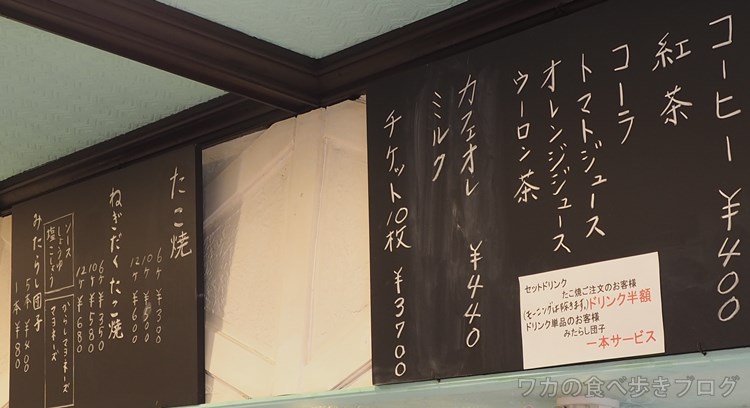 コーヒー ¥400
紅茶
コーラ
トマトジュース
オレンジジュース
ウーロン茶
カフェオレ ¥440
ミルク
チケット10枚 ¥3700
セットドリンク
たこ焼ご注文のお客様
(モーニングは除きます。)ドリンク半額
ドリンク単品のお客様
みたらし団子
一本サービス
たこ焼
6ケ ¥300
10ケ ¥500
12ケ ¥600
ねぎだくたこ焼
6ケ ¥350
10ケ ¥580
12ケ ¥680
ソース
しょうゆ
塩こしょう
からしマヨネーズ
マヨネーズ
みたらし団子
5本 ¥400
1本 ¥80
ワカの食べ歩きブログ